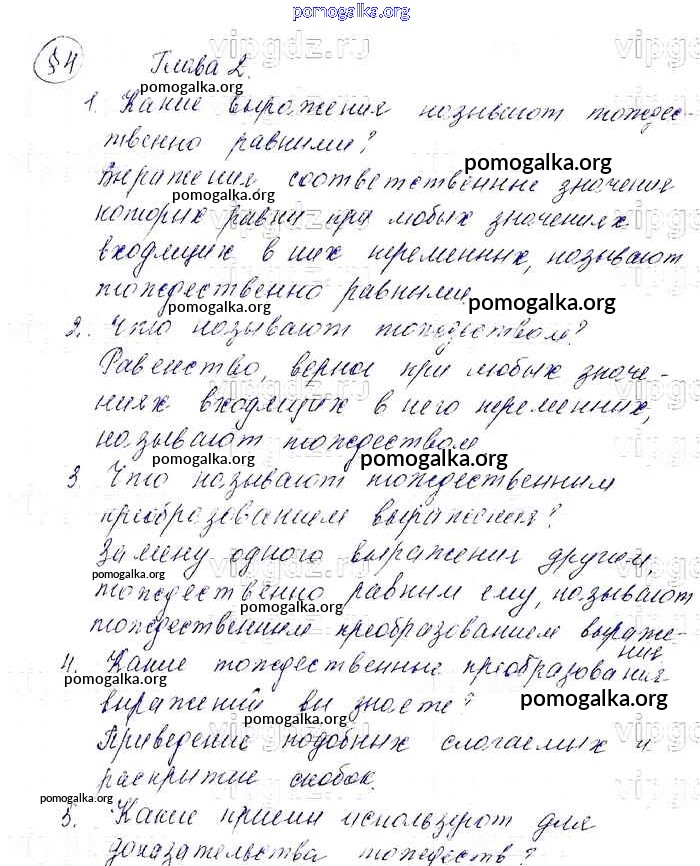 pomogalka.org
vipgdz.ru
§4 Глава 2.
pomogalka.org
1. Какие выражения называют тождес-
твенно равными?
pomogalka.org
Выражения соответственные значения
pomogalka.org
которых равны при любых значениях
входящих в них переменных, называют
тождественно равными.
pomogalka.org
2. Что называют тождеством?
Равенство, верное при любых значе-
ниях входящих в него переменных,
называют тождеством
pomogalka.org pomogalka.org
3. Что называют тождественным
преобразованием выражения?
Замену одного выражения другим,
pomogalka.org
тождественно равным ему, называют
pomogalka.org
тождественным преобразованием выраже-
ния
4. Какие тождественные преобразования
pomogalka.org
выражений вы знаете?
pomogalka.org
pomogalka.org
Приведение подобных слагаемых и
раскрытие скобок.
pomogalka.org
5. Какие приемы используют для
доказательства тождеств?